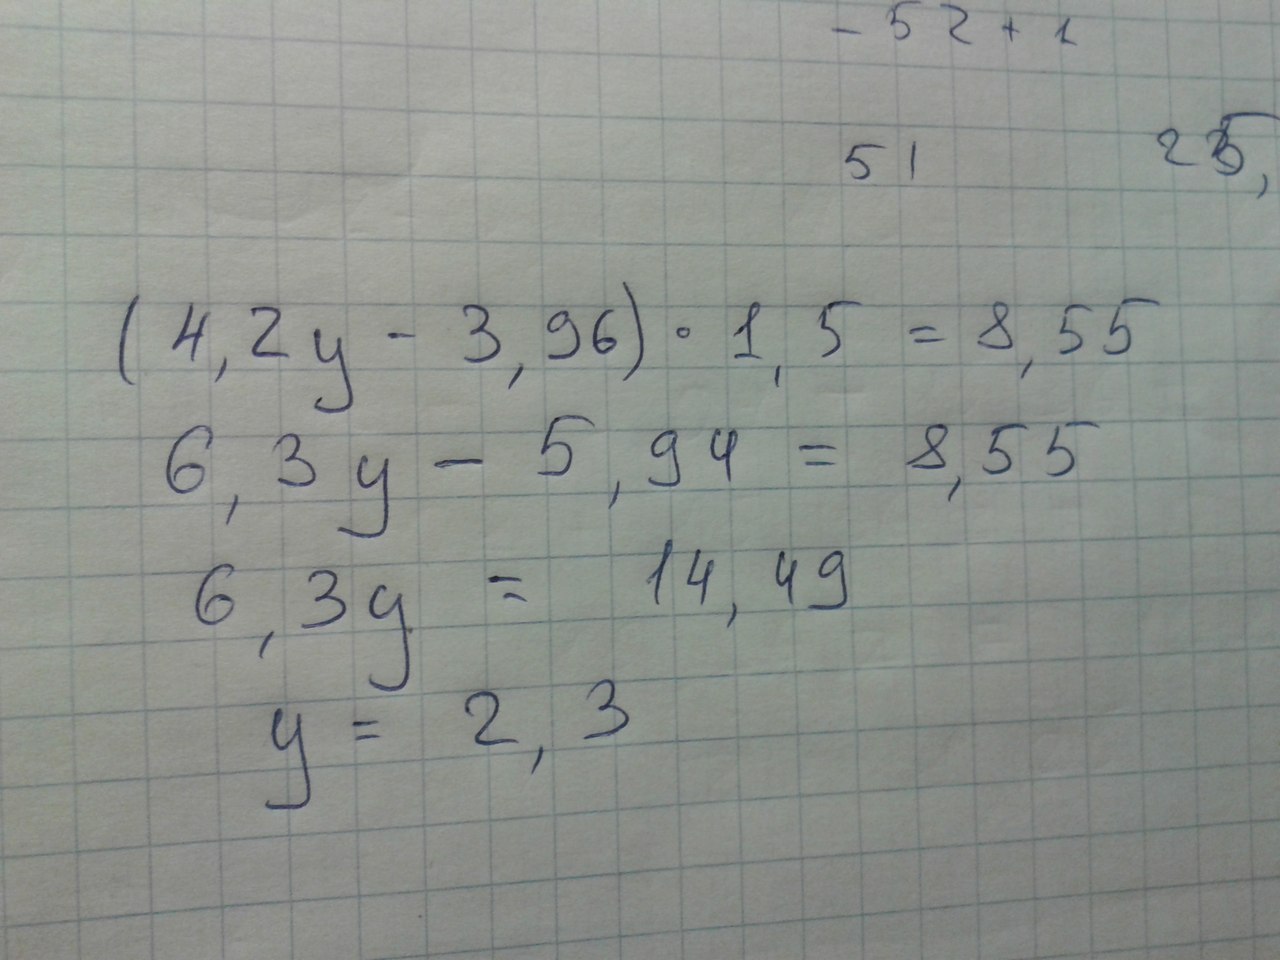 - 52 + 1
51
(4,2y - 3,96) · 1,5 = 8,55
6,3y - 5,94 = 8,55
6,3y = 14,49
y = 2,3